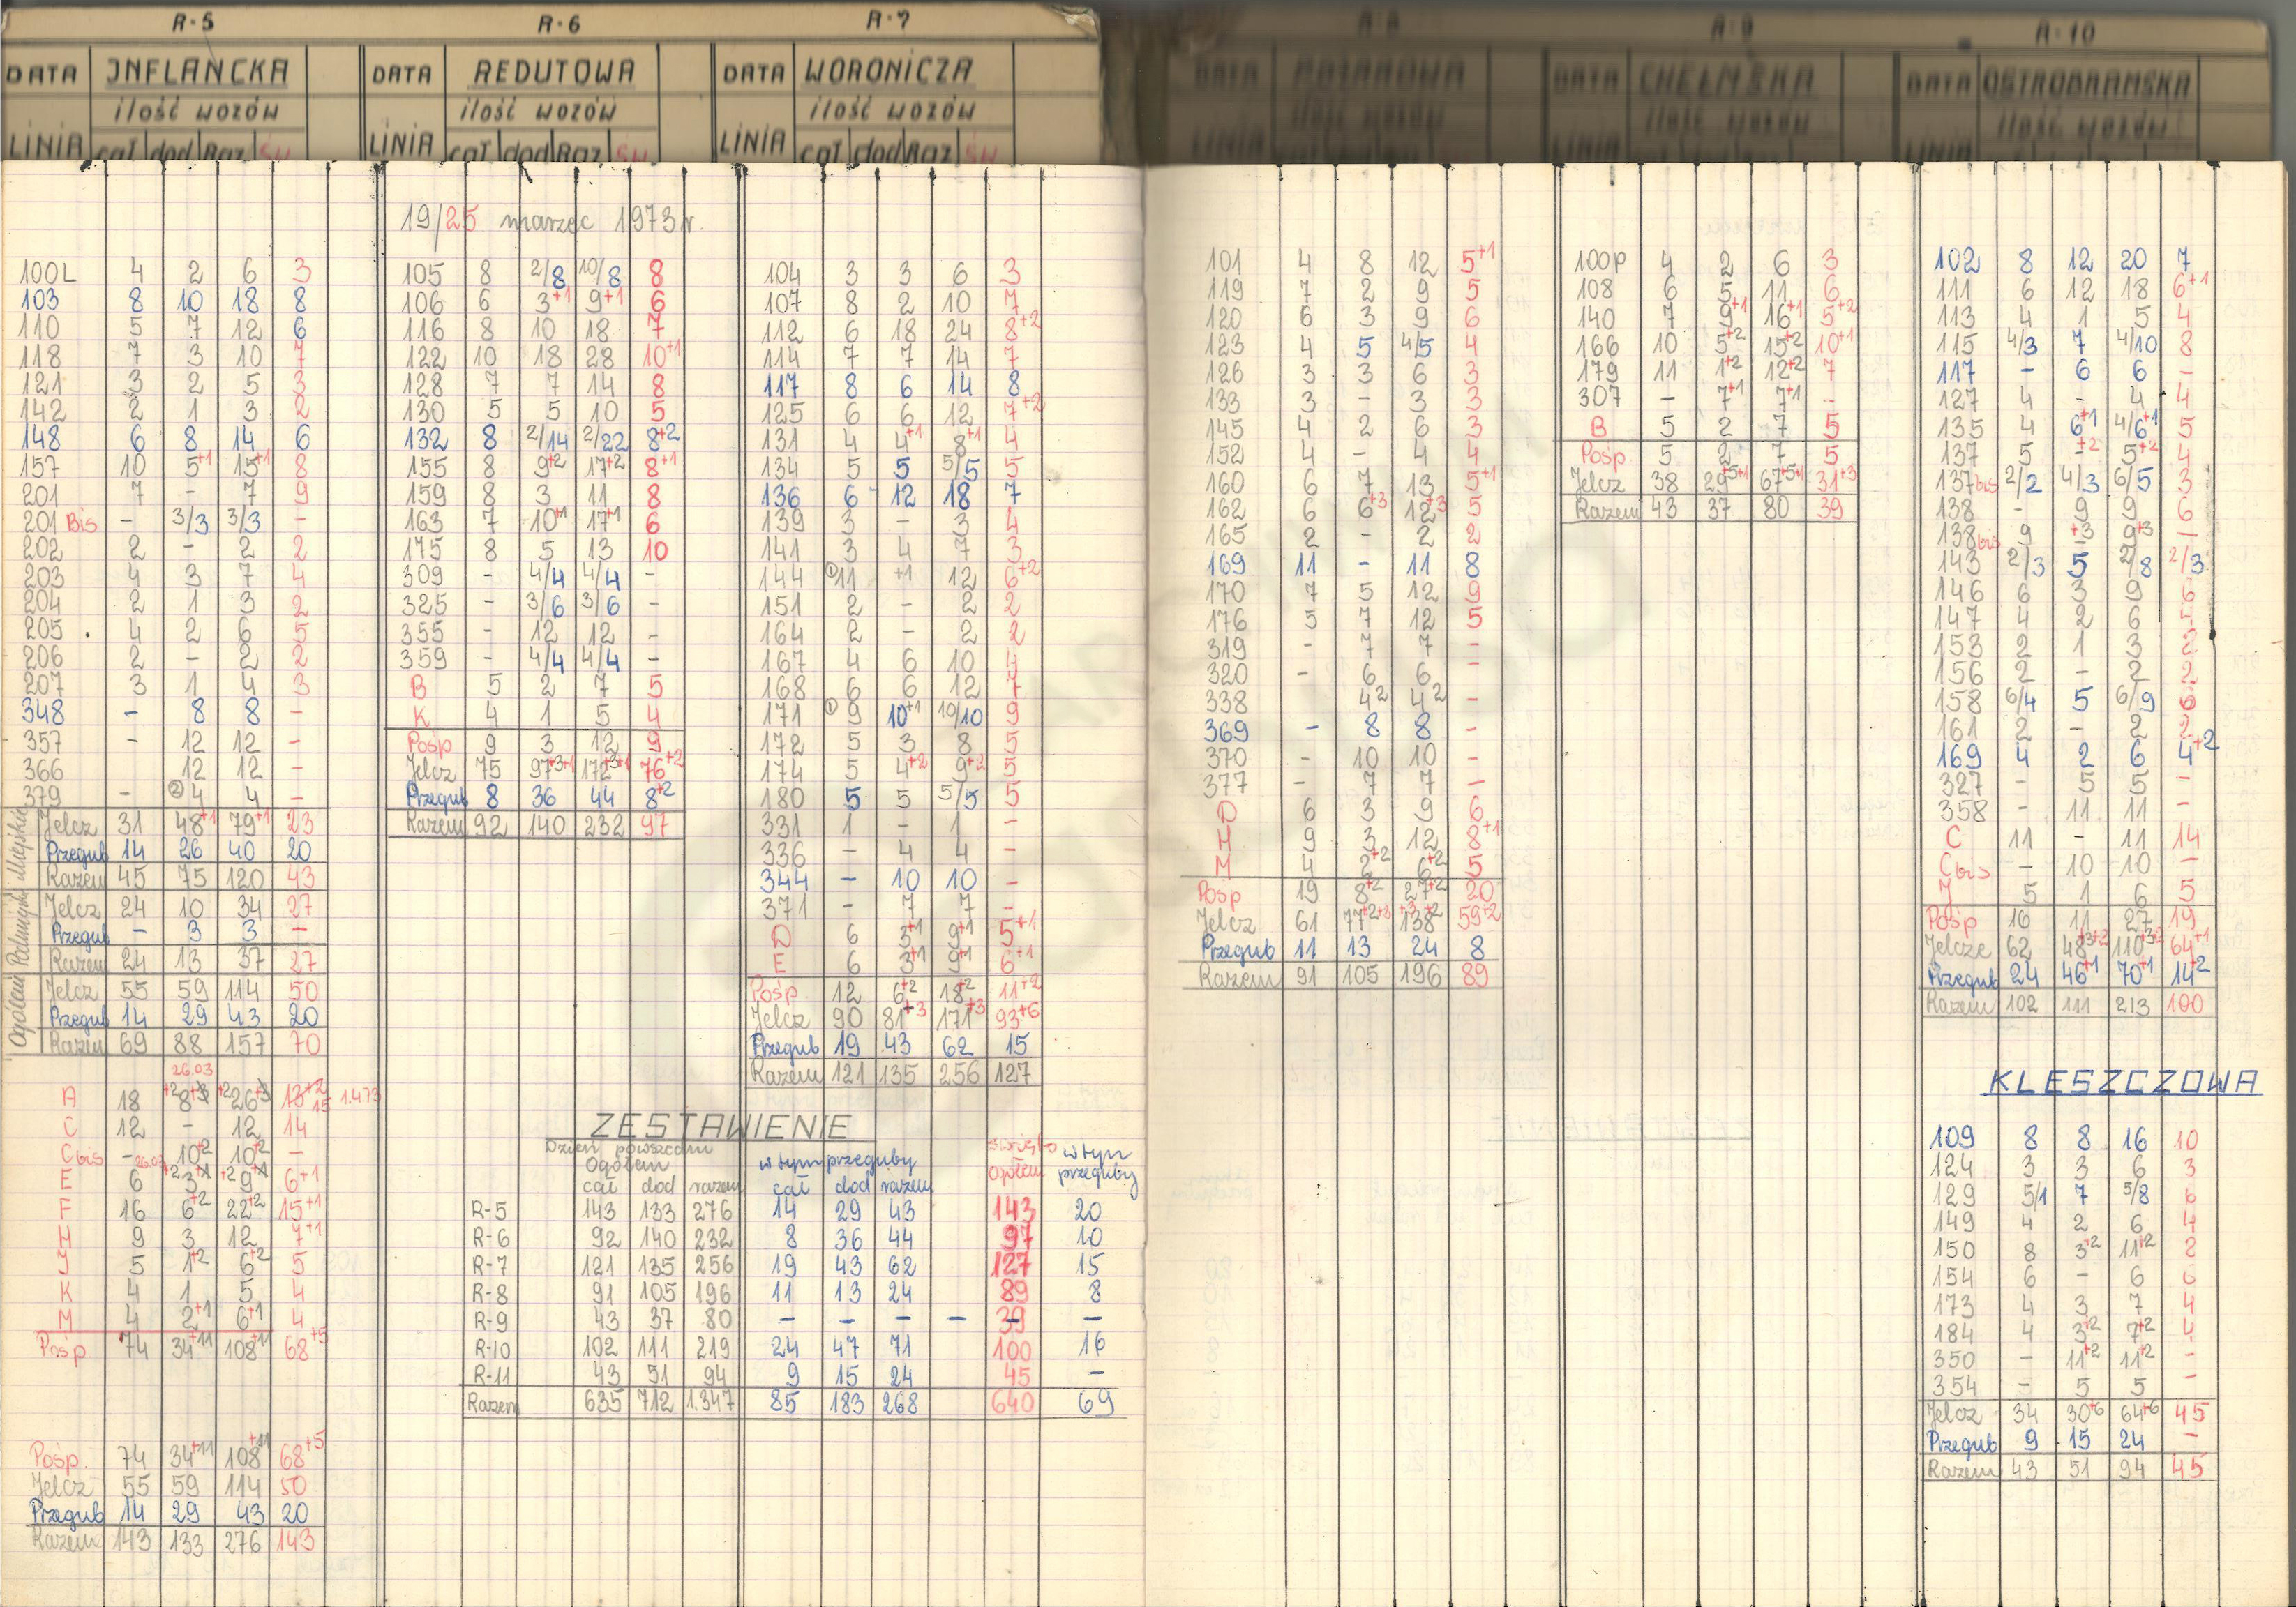 R-5
DATA INFLANCKA
ilość wozów
LINIA cał dod Raz Św
100L 4 2 6 3
103 8 10 18 8
110 5 7 12 6
118 7 3 10 7
121 3 2 5 3
142 2 1 3 2
148 6 8 14 6
157 10 5+1 15+1 8
201 7 - 7 9
201 Bis - 3/3 3/3 -
202 2 - 2 2
203 4 3 7 4
204 2 1 3 2
205 4 2 6 5
206 2 - 2 2
207 3 1 4 3
348 - 8 8 -
357 - 12 12 -
366 12 12 -
379 - ② 4 4 -
Miejskie
Jelcz 31 48+1 79+1 23
Przegub 14 26 40 20
Razem 45 75 120 43
Podmiejskie
Jelcz 24 10 34 27
Przegub - 3 3 -
Razem 24 13 37 27
Ogółem
Jelcz 55 59 114 50
Przegub 14 29 43 20
Razem 69 88 157 70
26.03
A 18 +2 8+3 +2 26+3 13+2 15 1.4.73
C 12 - 12 14
C bis - 10+2 10+2 -
26.03
E 6 +2 3+1 +2 9+1 6+1
F 16 6+2 22+2 15+1
H 9 3 12 7+1
J 5 1+2 6+2 5
K 4 1 5 4
M 4 2+1 6+1 4
Pośp 74 34+11 108+11 68+5
Pośp. 74 34+11 108+11 68+5
Jelcz 55 59 114 50
Przegub 14 29 43 20
Razem 143 133 276 143
R-6
DATA REDUTOWA
ilość wozów
LINIA cał dod Raz Św
19/25 marzec 1973 r.
105 8 2/8 10/8 8
106 6 3+1 9+1 6
116 8 10 18 7
122 10 18 28 10+1
128 7 7 14 8
130 5 5 10 5
132 8 2/14 2/22 8+2
155 8 9+2 17+2 8+1
159 8 3 11 8
163 7 10+1 17+1 6
175 8 5 13 10
309 - 4/4 4/4 -
325 - 3/6 3/6 -
355 - 12 12 -
359 - 4/4 4/4 -
B 5 2 7 5
K 4 1 5 4
Pośp 9 3 12 9
Jelcz 75 97+3+1 172+3+1 76+2
Przegub 8 36 44 8+2
Razem 92 140 232 97
R-7
DATA WORONICZA
ilość wozów
LINIA cał dod Raz Św
104 3 3 6 3
107 8 2 10 7
112 6 18 24 8+2
114 7 7 14 7
117 8 6 14 8
125 6 6 12 7+2
131 4 4+1 8+1 4
134 5 5 5/5 5
136 6 12 18 7
139 3 - 3 4
141 3 4 7 3
144 ① 11 +1 12 6+2
151 2 - 2 2
164 2 - 2 2
167 4 6 10 4
168 6 6 12 7
171 ① 9 10+1 10/10 9
172 5 3 8 5
174 5 4+2 9+2 5
180 5 5 5/5 5
331 1 - 1 -
336 - 4 4 -
344 - 10 10 -
371 - 7 7 -
D 6 3+1 9+1 5+1
E 6 3+1 9+1 6+1
Pośp. 12 6+2 18+2 11+2
Jelcz 90 81+3 171+3 93+6
Przegub 19 43 62 15
Razem 121 135 256 127
ZESTAWIENIE
Dzień powszedni
Ogółem
cał dod razem
w tym przeguby
cał dod razem
święto
ogółem
w tym
przeguby
R-5 143 133 276 14 29 43 143 20
R-6 92 140 232 8 36 44 97 10
R-7 121 135 256 19 43 62 127 15
R-8 91 105 196 11 13 24 89 8
R-9 43 37 80 - - - - 39 -
R-10 102 111 219 24 47 71 100 16
R-11 43 51 94 9 15 24 45 -
Razem 635 712 1.347 85 183 268 640 69
R-8
DATA
ilość wozów
LINIA
101 4 8 12 5+1
119 7 2 9 5
120 6 3 9 6
123 4 5 4/5 4
126 3 3 6 3
133 3 - 3 3
145 4 2 6 3
152 4 - 4 4
160 6 7 13 5+1
162 6 6+3 12+3 5
165 2 - 2 2
169 11 - 11 8
170 7 5 12 9
176 5 7 12 5
319 - 7 7 -
320 - 6 6 -
338 4 2 4 2 -
369 - 8 8 -
370 - 10 10 -
377 - 7 7 -
D 6 3 9 6
H 9 3 12 8+1
M 4 2+2 6+2 5
Pośp 19 8+2 27+2 20
Jelcz 61 77+2+3 138+3+2 59+2
Przegub 11 13 24 8
Razem 91 105 196 89
R-9
DATA CHEŁMSKA
ilość wozów
LINIA
100p 4 2 6 3
108 6 5 11 6
140 7 9+1 16+1 5+2
166 10 5+2 15+2 10+1
179 11 1+2 12+2 7
307 - 7+1 7+1 -
B 5 2 7 5
Pośp. 5 2 7 5
Jelcz 38 29+5+1 67+5+1 31+3
Razem 43 37 80 39
R-10
DATA OSTROBRAMSKA
ilość wozów
LINIA
102 8 12 20 7
111 6 12 18 6+1
113 4 1 5 4
115 4/3 7 4/10 8
117 - 6 6 -
127 4 - 4 4
135 4 6+1 4/6+1 5
137 5 +2 5+2 4
137 bis 2/2 4/3 6/5 3
138 - 9 9 6
138 bis 9 +3 9+3 -
143 2/3 5 2/8 2/3
146 6 3 9 6
147 4 2 6 5
153 2 1 3 2
156 2 - 2 2
158 6/4 5 6/9 6
161 2 - 2 2
169 4 2 6 4+2
327 - 5 5 -
358 - 11 11 -
C 11 - 11 14
C bis - 10 10 -
J 5 1 6 5
Pośp 16 11 27 19
Jelcze 62 48+3+2 110+3+2 64+1
Przegub 24 46+1 70+1 14+2
Razem 102 111 213 100
KLESZCZOWA
109 8 8 16 10
124 3 3 6 3
129 5/1 7 5/8 6
149 4 2 6 4
150 8 3+2 11+2 2
154 6 - 6 6
173 4 3 7 4
184 4 3+2 7+2 4
350 - 11+2 11+2 -
354 - 5 5 -
Jelcz 34 30+6 64+6 45
Przegub 9 15 24 -
Razem 43 51 94 45